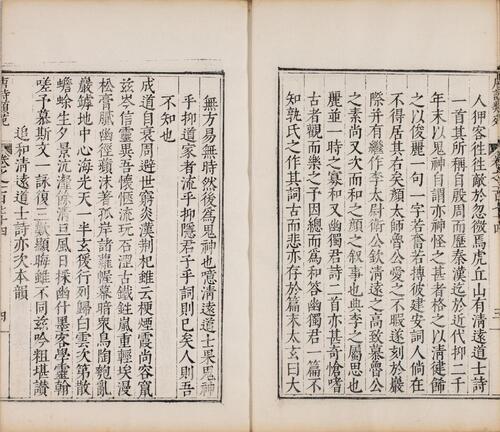 人狎客徃徃敵於忽微焉虎丘山有清遠道士詩
一首其所稱自殷周而歷秦漢迄於近代抑二千
年末以鬼神自謂亦神怪之甚者格之以清徤飾
之以俊麗一句一字若奮若搏彼建安詞人倘在
不得居其右矣顔太師魯公愛之不暇遂刻於巖
際幷有繼作李太尉衛公欽清遠之高致慕魯公
之素尚又次而和之顔之叙事也典李之屬思也
麗並一時之寡和又幽獨君詩二首亦甚奇愴嗜
古者觀而樂之予因緫而為和答幽獨君一篇不
知孰氏之作其詞古而悲亦存於篇末太玄曰大
無方易無時然後為鬼神也噫清遠道士果鬼神
乎抑道家者流乎抑隱君子乎詞則已矣人則吾
不知也
成道自衰周避世窮炎漢荆杞雖云梗煙霞尚容竄
兹岑信靈異吾懷愜流玩石澀古鐵鉎嵐重輕埃漫
松膏膩幽徑蘋沫著孤岸諸蘿幄幕暗衆鳥陶匏亂
巖罅地中心海光天一半玄猨行列歸白雲次第散
蟾蜍生夕景沆瀣餘清旦風日採幽什墨客學靈翰
嗟予慕斯文一詠復三歎顯晦雖不同兹吟粗堪讚
追和清遠道士詩亦次本韻
唐詩類苑
卷之一百三十四
四
三